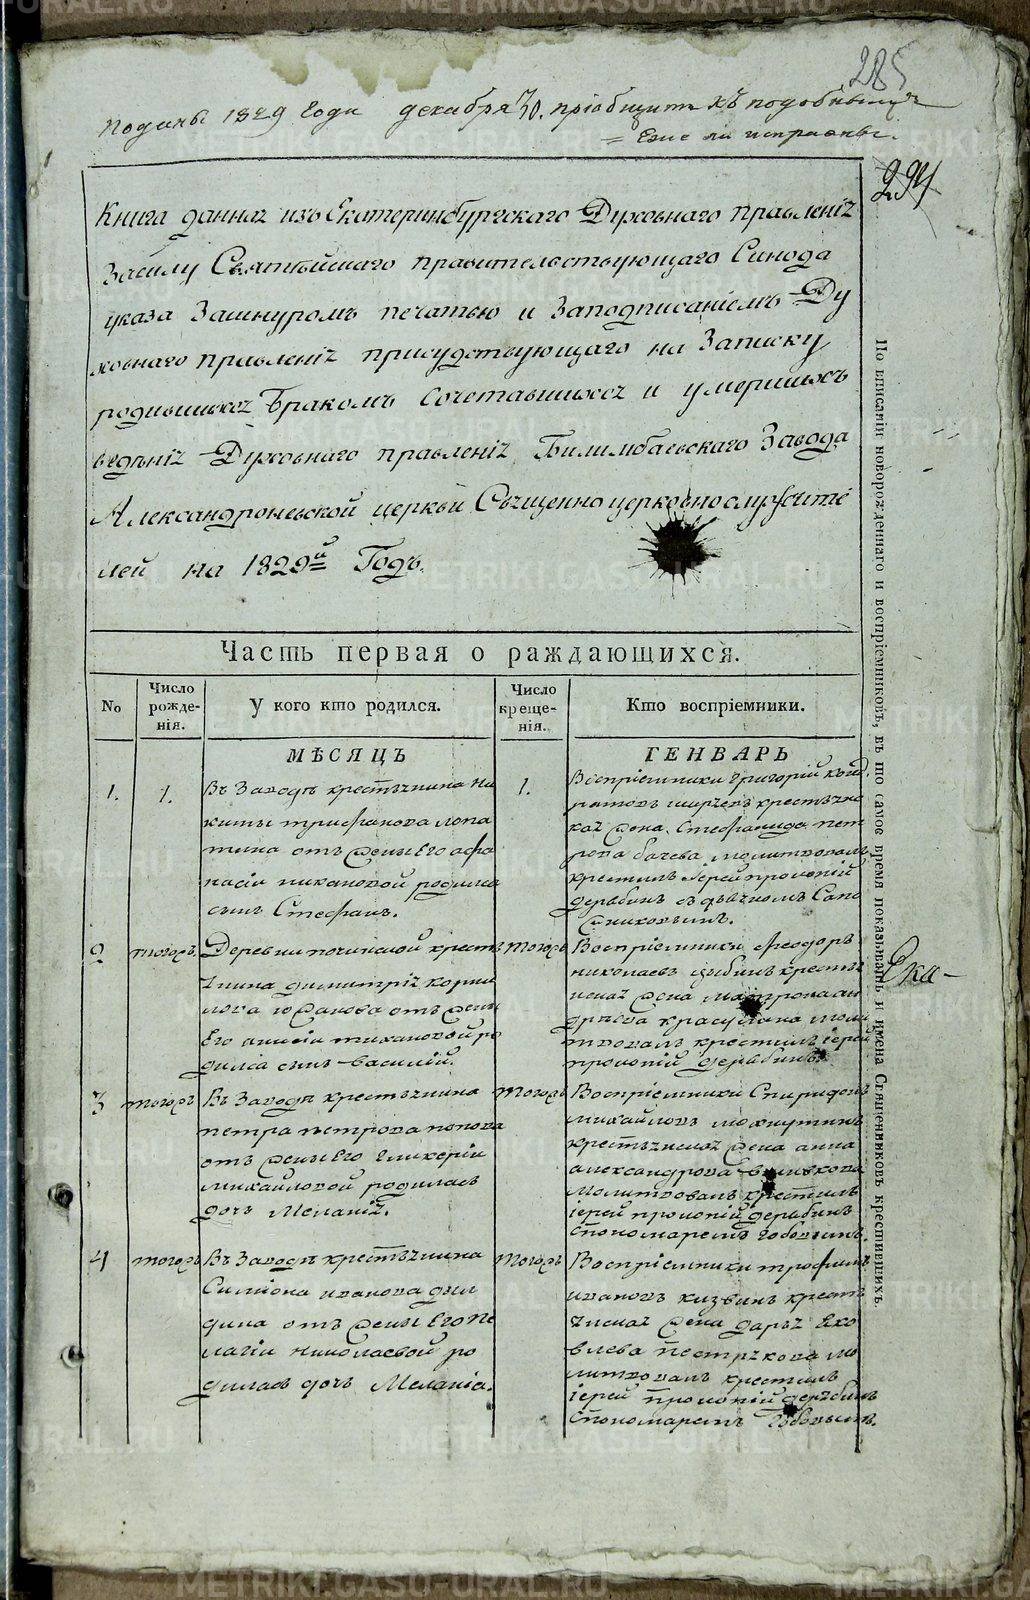 285
Поданы 1829 Года декабря 30. пріобщить къ подобнымъ
= Ежели исправны.
294
Книга данная изъ Екатеринбургскаго Духовнаго правленія
Засилу Святѣйшаго правительствующаго Синода
указа Зашнуромъ печатью и Заподписаніемъ Ду
ховнаго правленія присудствующаго на Записку
родившихся Бракомъ Сочетавшихся и умершихъ
ведѣнія Духовнаго правленія Билимбаевскаго Завода
Александроневской церкви Священно церковнослужите
лей на 1829й Годъ.
Часть первая о раждающихся.
No
Число рожде-нія.
У кого кто родился.
Число креще-нія.
Кто воспріемники.
МѢСЯЦЪ
ГЕНВАРЬ
1.
1.
Въ Заводѣ крестьянина Ни
киты трифанова лопа
тина отъ жены Его афа
насіи никановой родился
сынъ Стефанъ.
1.
Воспріемники григорій
крестьянс
кая жена Стефанида пет
рова молитвовалъ
крестилъ Іерей прокопій
дерябинъ съ дьячкомъ Сапо
жниковымъ.
2
тогожъ
Деревни починкой кресть
янина димитрія корни
лова отъ жены
Его анисіи тихановой ро
дился сынъ василій.
тогожъ
Воспріемники феодоръ
николаевъ цыбинъ кресть
янская жена матрона ан
дреева моли
твовалъ крестилъ іерей
прокопій дерябинъ.
3
тогожъ
Въ Заводѣ крестьянина
петра петрова попова
отъ жены Его гликеріи
михайловой родилась
дочь Меланія.
тогожъ
Воспріемники Спиридонъ
михайловъ махнуткинъ
крестьянская жена анна
александрова
молитвовалъ крестилъ
іерей прокопій дерябинъ
спономаремъ
4
тогожъ
Въ Заводѣ крестьянина
Симіона иванова
дина отъ жены Его пе
лагіи николаевой ро
дилась дочь Меланіа.
тогожъ
Воспріемники трофимъ
ивановъ кизвинъ кресть
янская жена дарья Яко
влева пестрякова мо
литвовалъ крестилъ
іерей прокопій дерябинъ
спономаремъ
По вписаніи новорожденнаго и воспріемниковъ, въ то самое время показывать и имена Священниковъ крестившихъ.
Ека-
METRIKI.GASU-URAL.RU